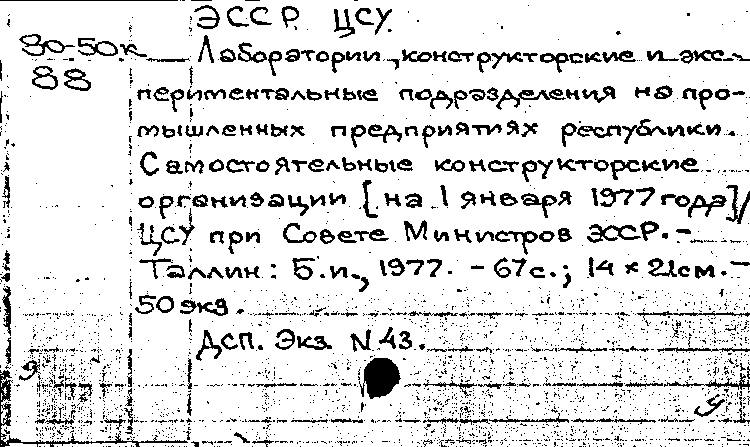 ЭССР. ЦСУ.
80-50к Лаборатории, конструкторские и экс-
88
периментальные подразделения на про-
мышленных предприятиях республики.
Самостоятельные конструкторские
организации [на 1 января 1977 года]/
ЦСУ при Совете Министров ЭССР. -
Таллин: Б.и., 1977. - 67с.; 14 × 21см. -
50 экз.
ДСП. Экз. N 43.